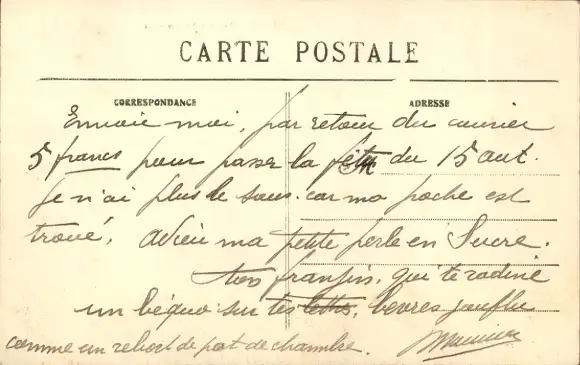 CARTE POSTALE
CORRESPONDANCE ADRESSE
Envoie moi, par retour du courier
5 francs pour passer la fête du 15 aut.
Je n'ai plus le sous. car ma poche est
troué, adieu ma petite perle en Sucre.
ton franfris, qui te
un béquo sur tes lettres, levres jouflu
comme un rebort de pot de chambre.